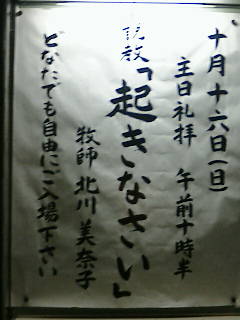 十月十六日(日)
主日礼拝 午前十時半
説教「起きなさい」
牧師 北川 美奈子
どなたでも自由にご入場下さい